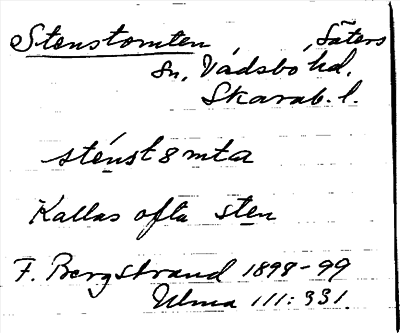 Stenstomten Säters
Sn, Vadsbo hd.
Skarab. l.
sténst8mta
Kallas ofta sten
F. Bergstrand 1898-99
Ulma 111:331.